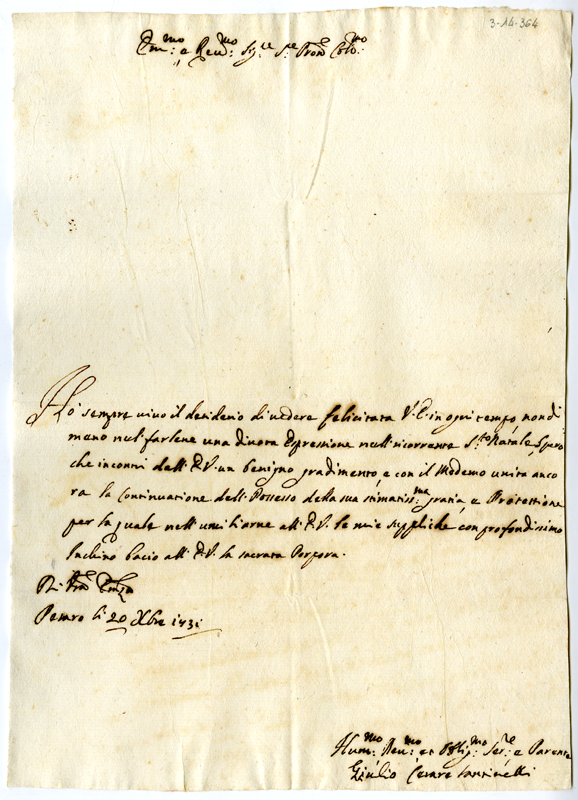 3-14-364
Em:mo e Reu:mo Sig:re S:re Pron Col:mo
Hò sempre viuo il desiderio di uedere felicitata V. E. in ogni tempo, non di
meno nel farlene una diuota Espressione nell'ricorrente S:to Natale, Spero
che incontri dall'E. V. un benigno gradimento, e con il Medemo unita anco
ra la Continuatione dell'Possesso della sua stimatiss:ma gratia, e Protettione
per la quale nell'umiliarne all'E. V. le mie suppliche con profondissimo
Inchino bacio all'E. V. la sacrata Porpora.
Di Vra Emza
Pesaro li 20 Xbre 1731
Hum:mo Deu:mo et Obblig:mo Ser:re e Parente
Giulio Cesare Santinelli